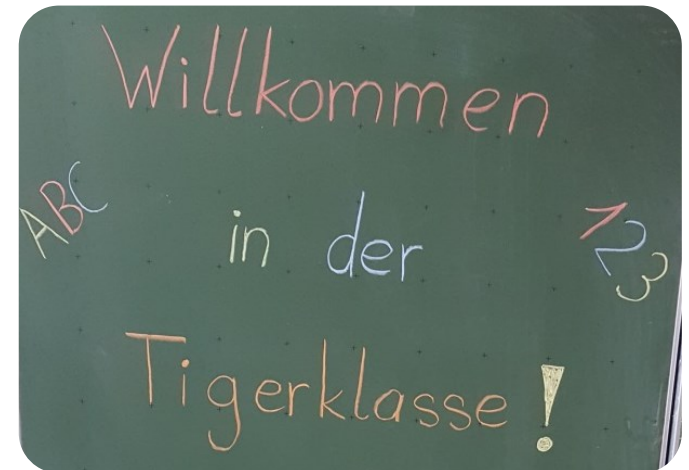 Willkommen
ABC
in der
123
Tigerklasse!